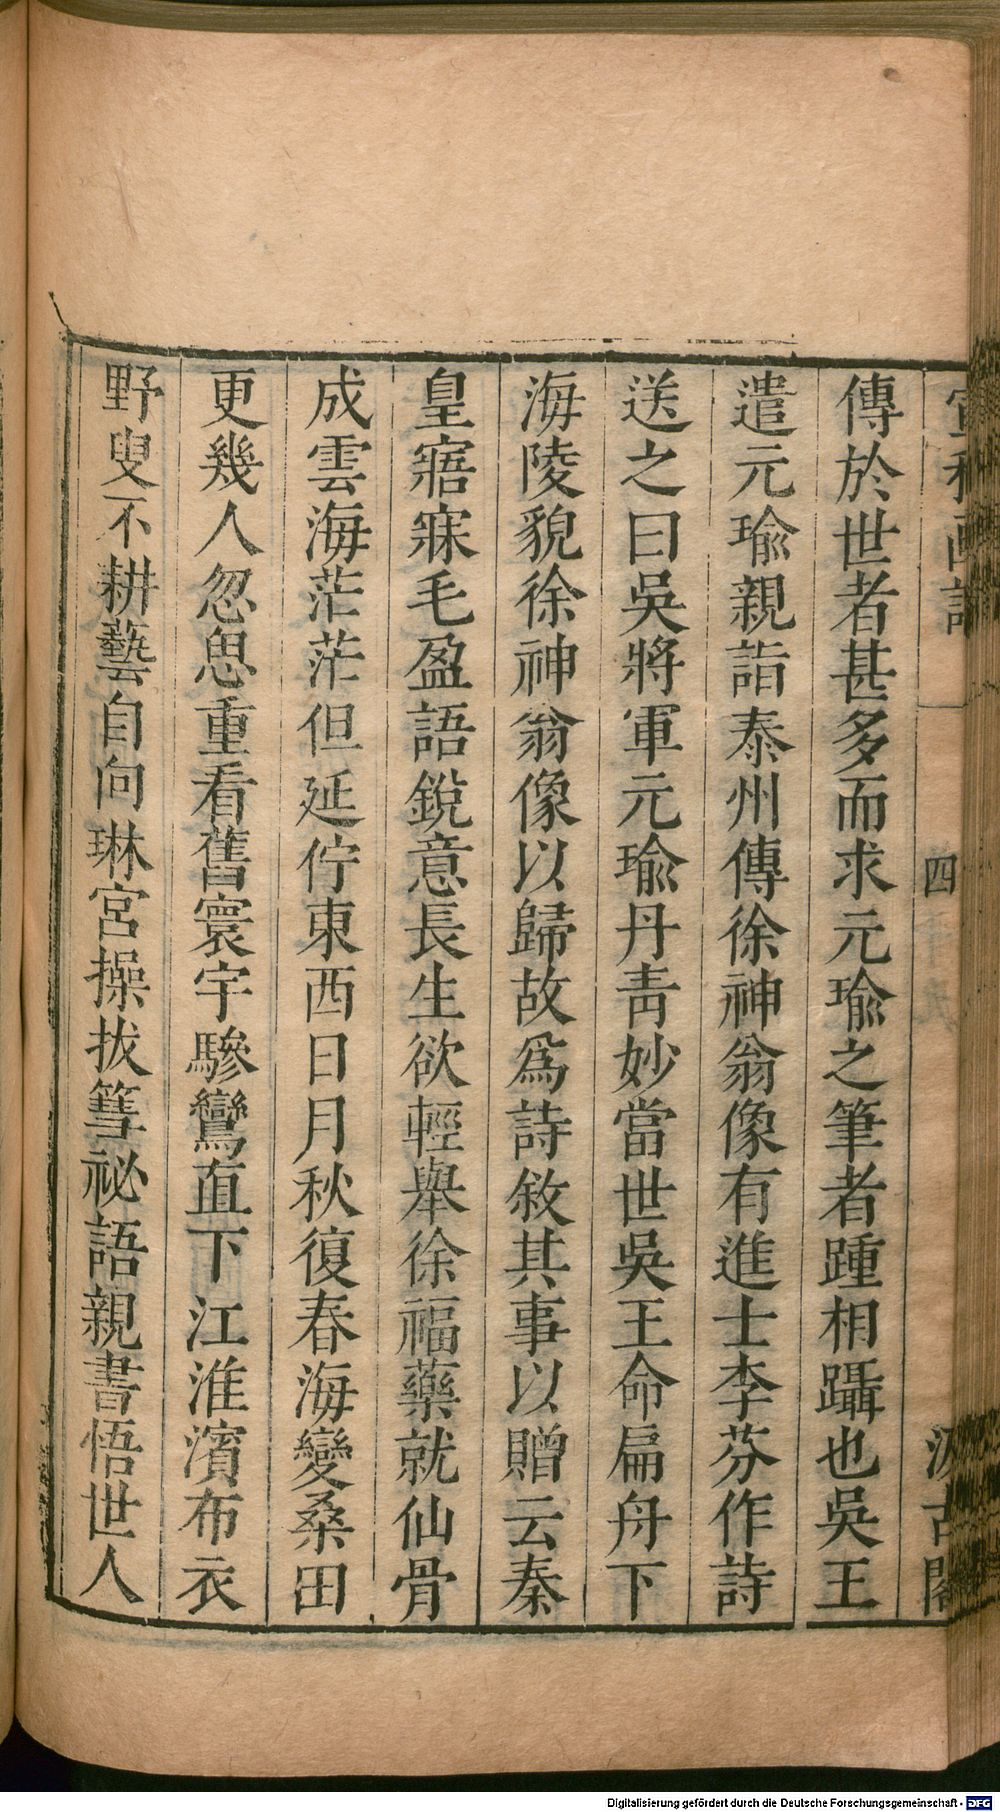 宣和画譜 四 汲古閣
傳於世者甚多而求元瑜之筆者踵相躡也吳王
遣元瑜親詣泰州傳徐神翁像有進士李芬作詩
送之曰吳將軍元瑜丹靑妙當世吳王命扁舟下
海陵貌徐神翁像以歸故爲詩敘其事以贈云秦
皇寤寐毛盈語銳意長生欲輕舉徐福藥就仙骨
成雲海茫茫但延佇東西日月秋復春海變桑田
更幾人忽思重看舊寰宇驂鸞直下江淮濱布衣
野叟不耕藝自向琳宮操拔篲祕語親書悟世人
Digitalisierung gefördert durch die Deutsche Forschungsgemeinschaft - DFG